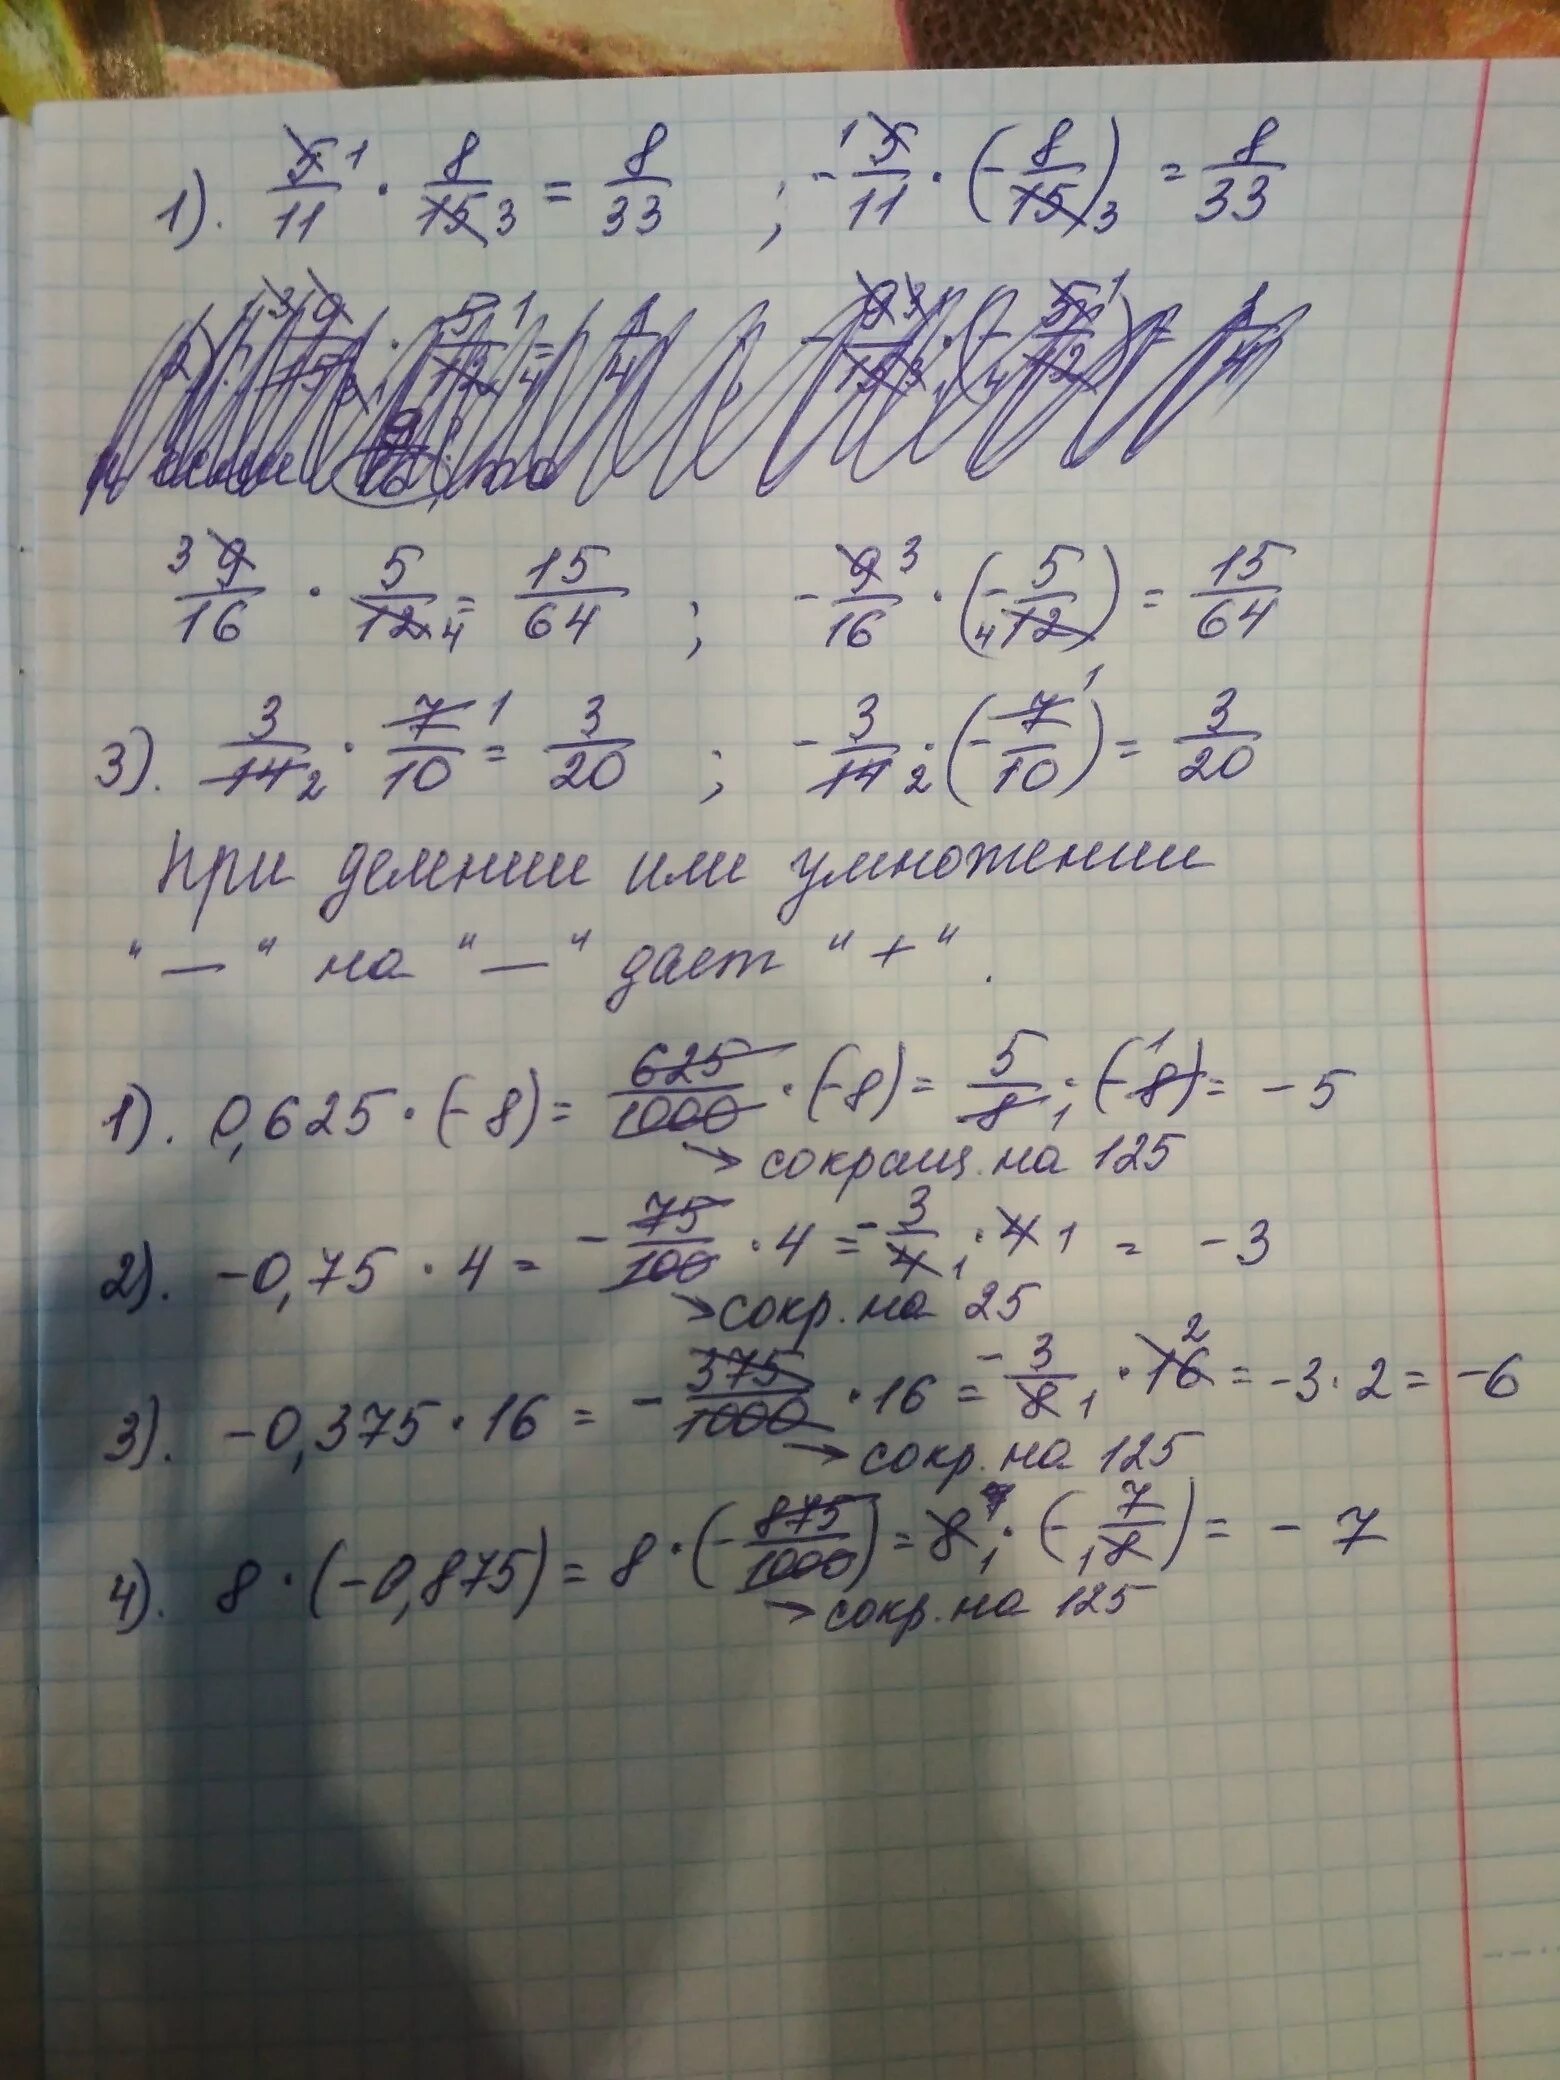 1). 5/11 1 · 8/15 3 = 8/33 ; - 1 5/11 · (- 8/15) 3 = 8/33
3 9/16 · 5/12 4 = 15/64 ; - 9/16 3 · (- 5/12 4) = 15/64
3). 3/14 2 · 7/10 1 = 3/20 ; - 3/14 2 · (- 7/10 1) = 3/20
При делении или умножении
"—" на "—" даёт "+".
1). 0,625 · (-8) = 625/1000 · (-8) = 5/8 1 · (-8 1) = -5
→ сокращ. на 125
2). -0,75 · 4 = - 75/100 · 4 = - 3/4 1 · 4 1 = -3
→ сокр. на 25
3). -0,375 · 16 = - 375/1000 · 16 = - 3/8 1 · 16 2 = -3 · 2 = -6
→ сокр. на 125
4). 8 · (-0,875) = 8 · (- 875/1000) = 8 1 · (- 7/8 1) = - 7
→ сокр. на 125